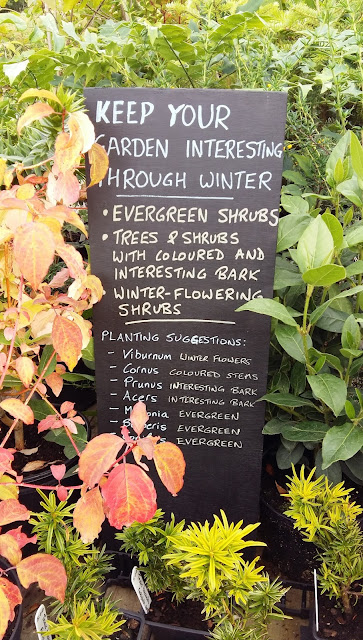 KEEP YOUR
GARDEN INTERESTING
THROUGH WINTER
• EVERGREEN SHRUBS
• TREES & SHRUBS
WITH COLOURED AND
INTERESTING BARK
WINTER-FLOWERING
SHRUBS
PLANTING SUGGESTIONS:
- Viburnum WINTER FLOWERS
- Cornus COLOURED STEMS
- Prunus INTERESTING BARK
- Acers INTERESTING BARK
- Mahonia EVERGREEN
- Berberis EVERGREEN
EVERGREEN